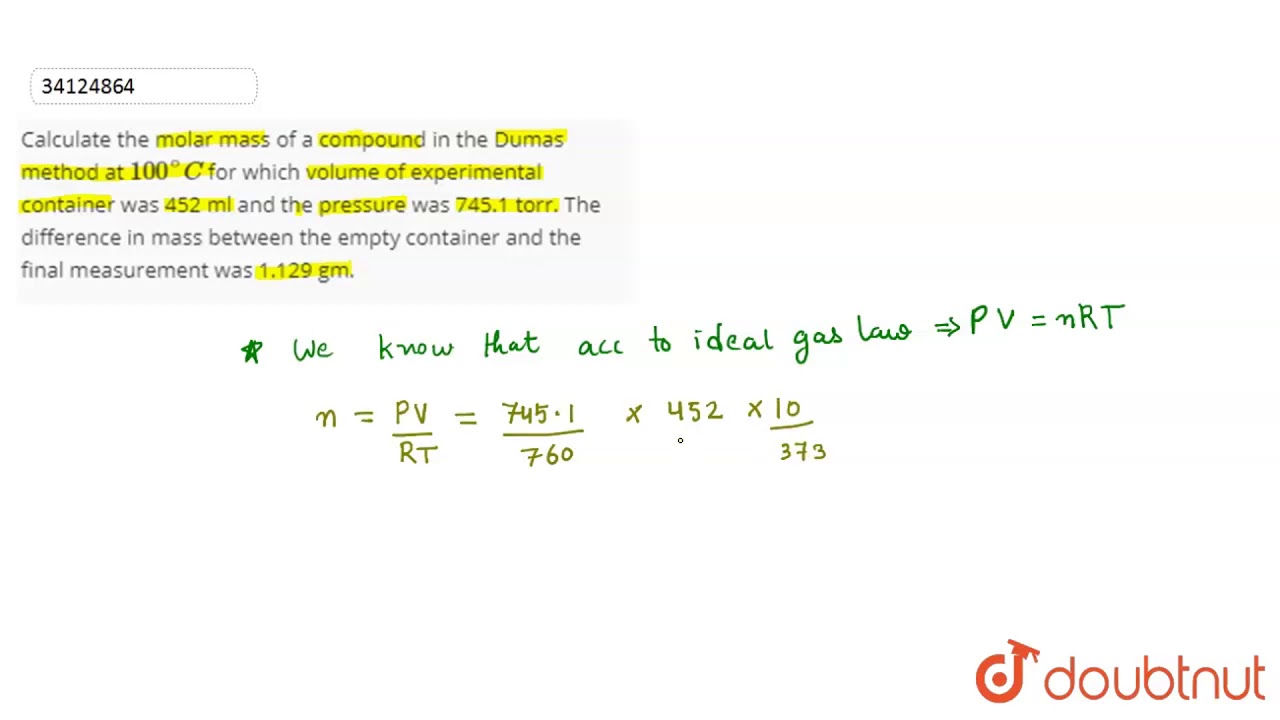 34124864
Calculate the molar mass of a compound in the Dumas
method at 100°C for which volume of experimental
container was 452 ml and the pressure was 745.1 torr. The
difference in mass between the empty container and the
final measurement was 1.129 gm.
* We know that acc to ideal gas law ⇒ PV = nRT
n = PV/RT = 745.1/760 × 452 × 10/373
doubtnut